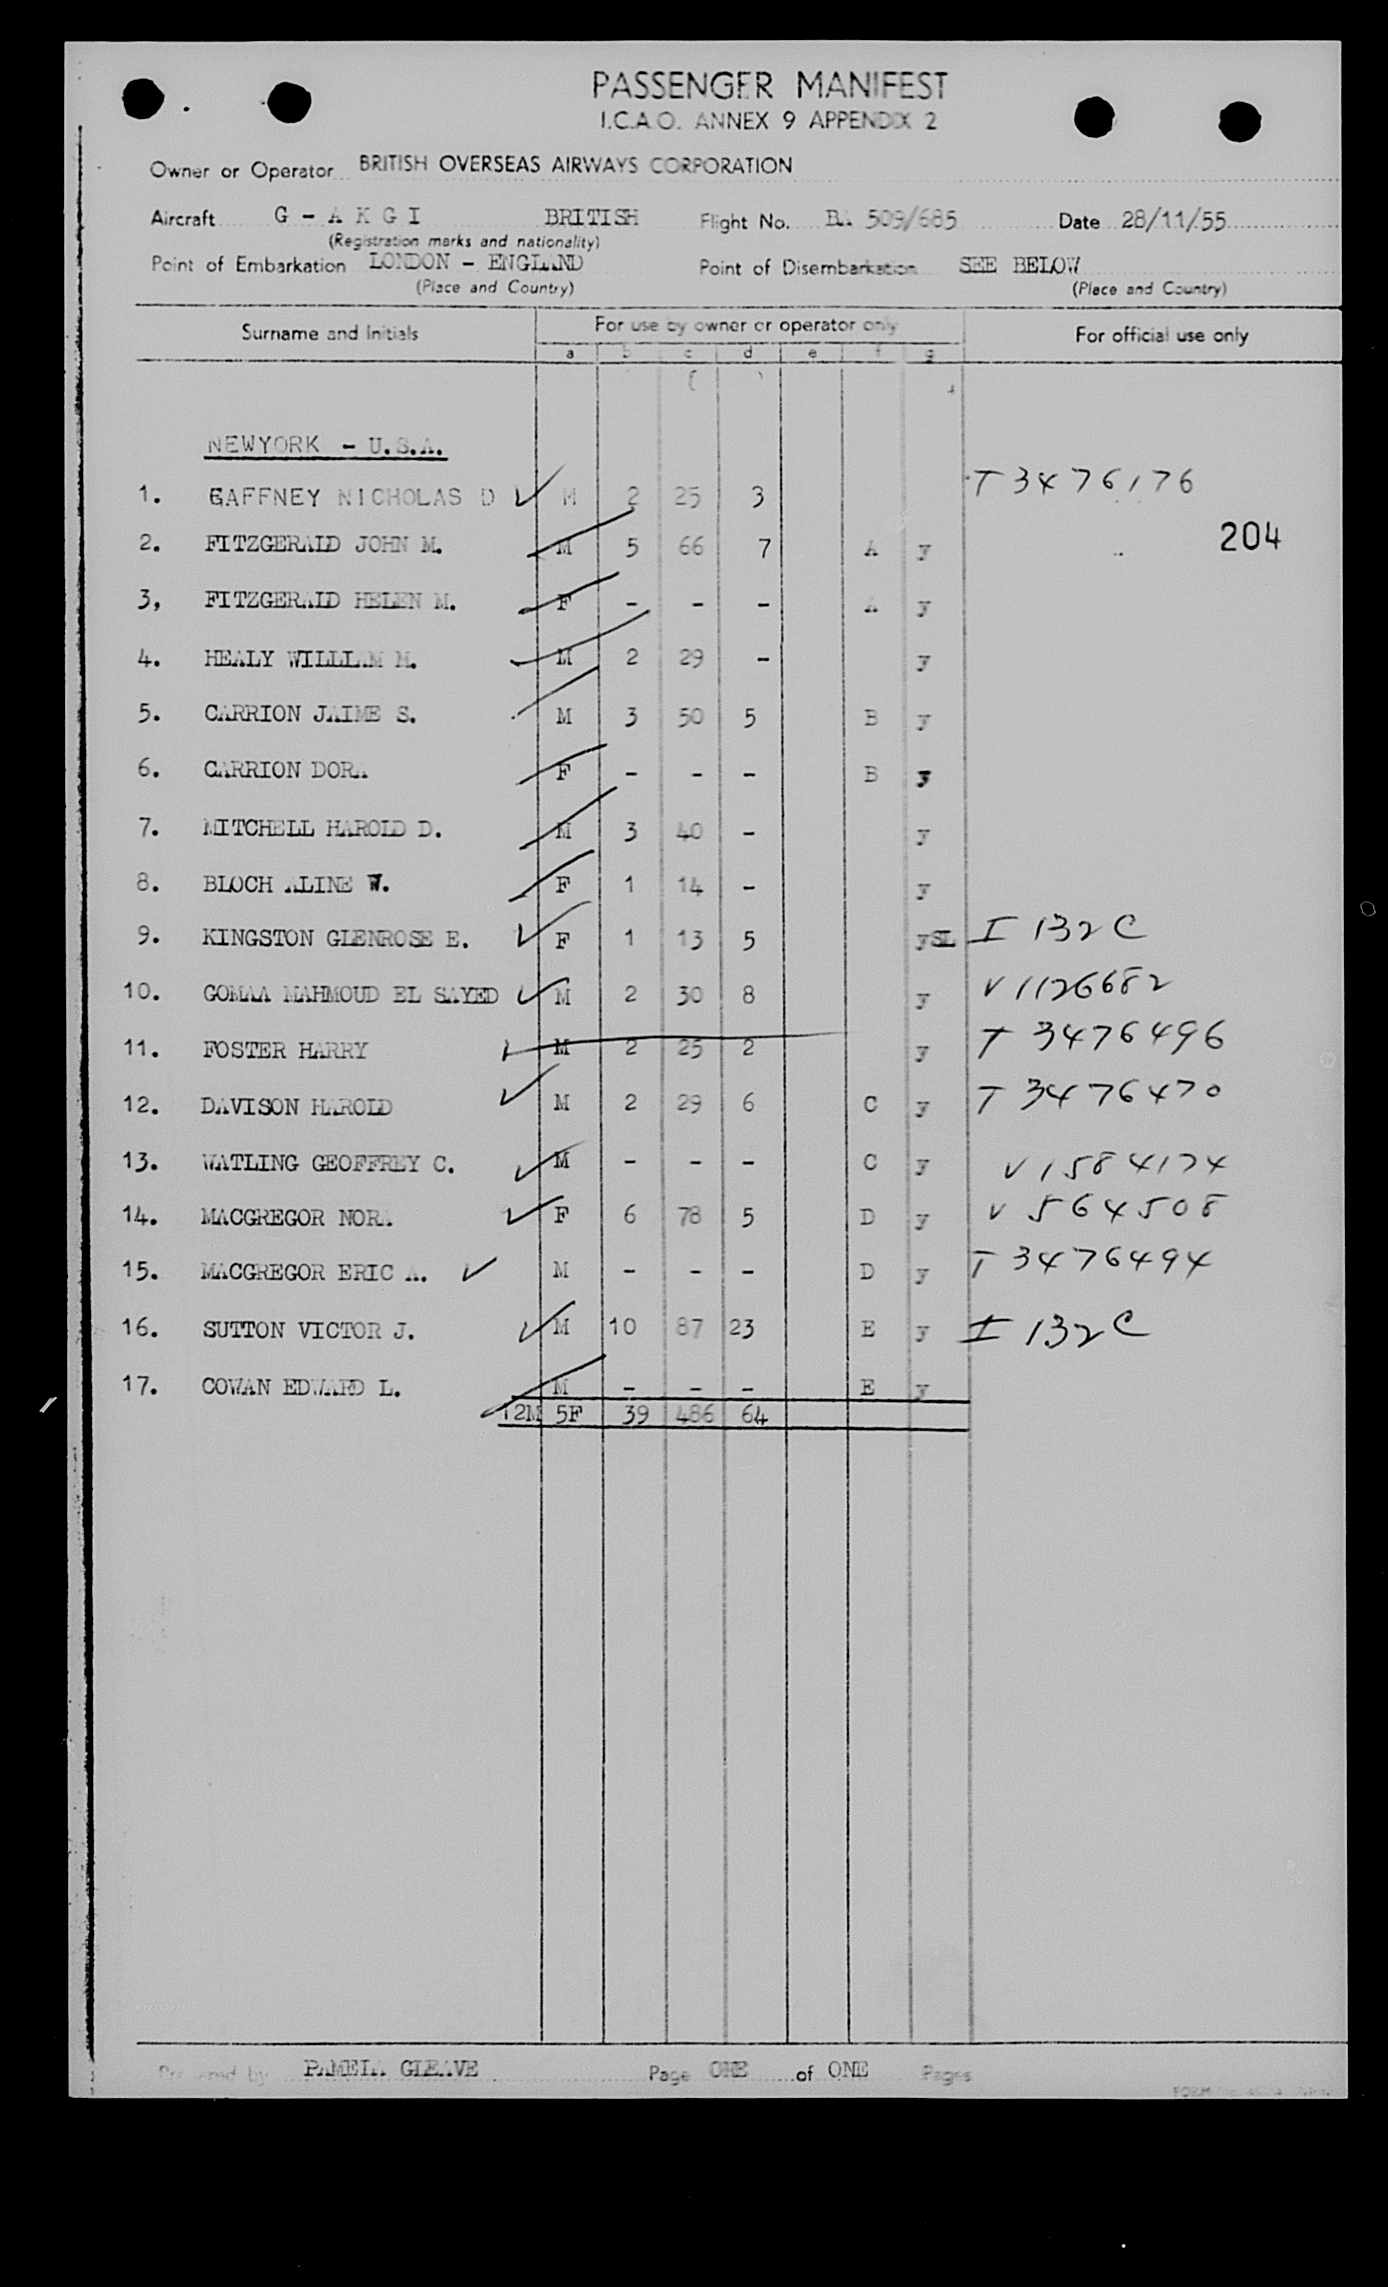 PASSENGER MANIFEST
I.C.A.O. ANNEX 9 APPENDIX 2
Owner or Operator BRITISH OVERSEAS AIRWAYS CORPORATION
Aircraft G - A K G I BRITISH Flight No. BA 509/685 Date 28/11/55
(Registration marks and nationality)
Point of Embarkation LONDON - ENGLAND Point of Disembarkation SEE BELOW
(Place and Country) (Place and Country)
Surname and Initials For use by owner or operator only For official use only
a b c d e f g
NEWYORK - U.S.A.
1. GAFFNEY NICHOLAS D M 2 25 3 T 3476176
204
2. FITZGERALD JOHN M. M 5 66 7 A y
3, FITZGERALD HELEN M. F - - - A y
4. HEALY WILLIAM M. M 2 29 - y
5. CARRION JAIME S. M 3 50 5 B y
6. CARRION DORA F - - - B y
7. MITCHELL HAROLD D. M 3 40 - y
8. BLOCH ALINE W. F 1 14 - y
9. KINGSTON GLENROSE E. F 1 13 5 ySL I 132 C
10. GOMAA MAHMOUD EL SAYED M 2 30 8 y V 1126682
11. FOSTER HARRY M 2 25 2 y T 3476496
12. DAVISON HAROLD M 2 29 6 C y T 3476470
13. WATLING GEOFFREY C. M - - - C y V 1584174
14. MACGREGOR NORA F 6 78 5 D y V 564508
15. MACGREGOR ERIC A. M - - - D y T 3476494
16. SUTTON VICTOR J. M 10 87 23 E y I 132 C
17. COWAN EDWARD L. M - - - E y
12M 5F 39 486 64
Prepared by PAMELA GLEAVE Page ONE of ONE Pages